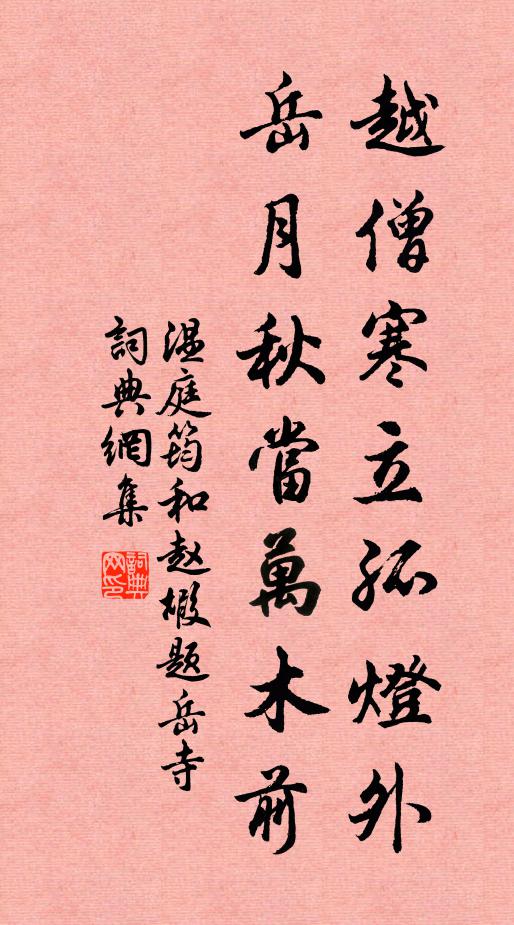 越僧寒立孤燈外
岳月秋當萬木前
温庭筠和赵嘏题岳寺
詞典網集
詞典網印